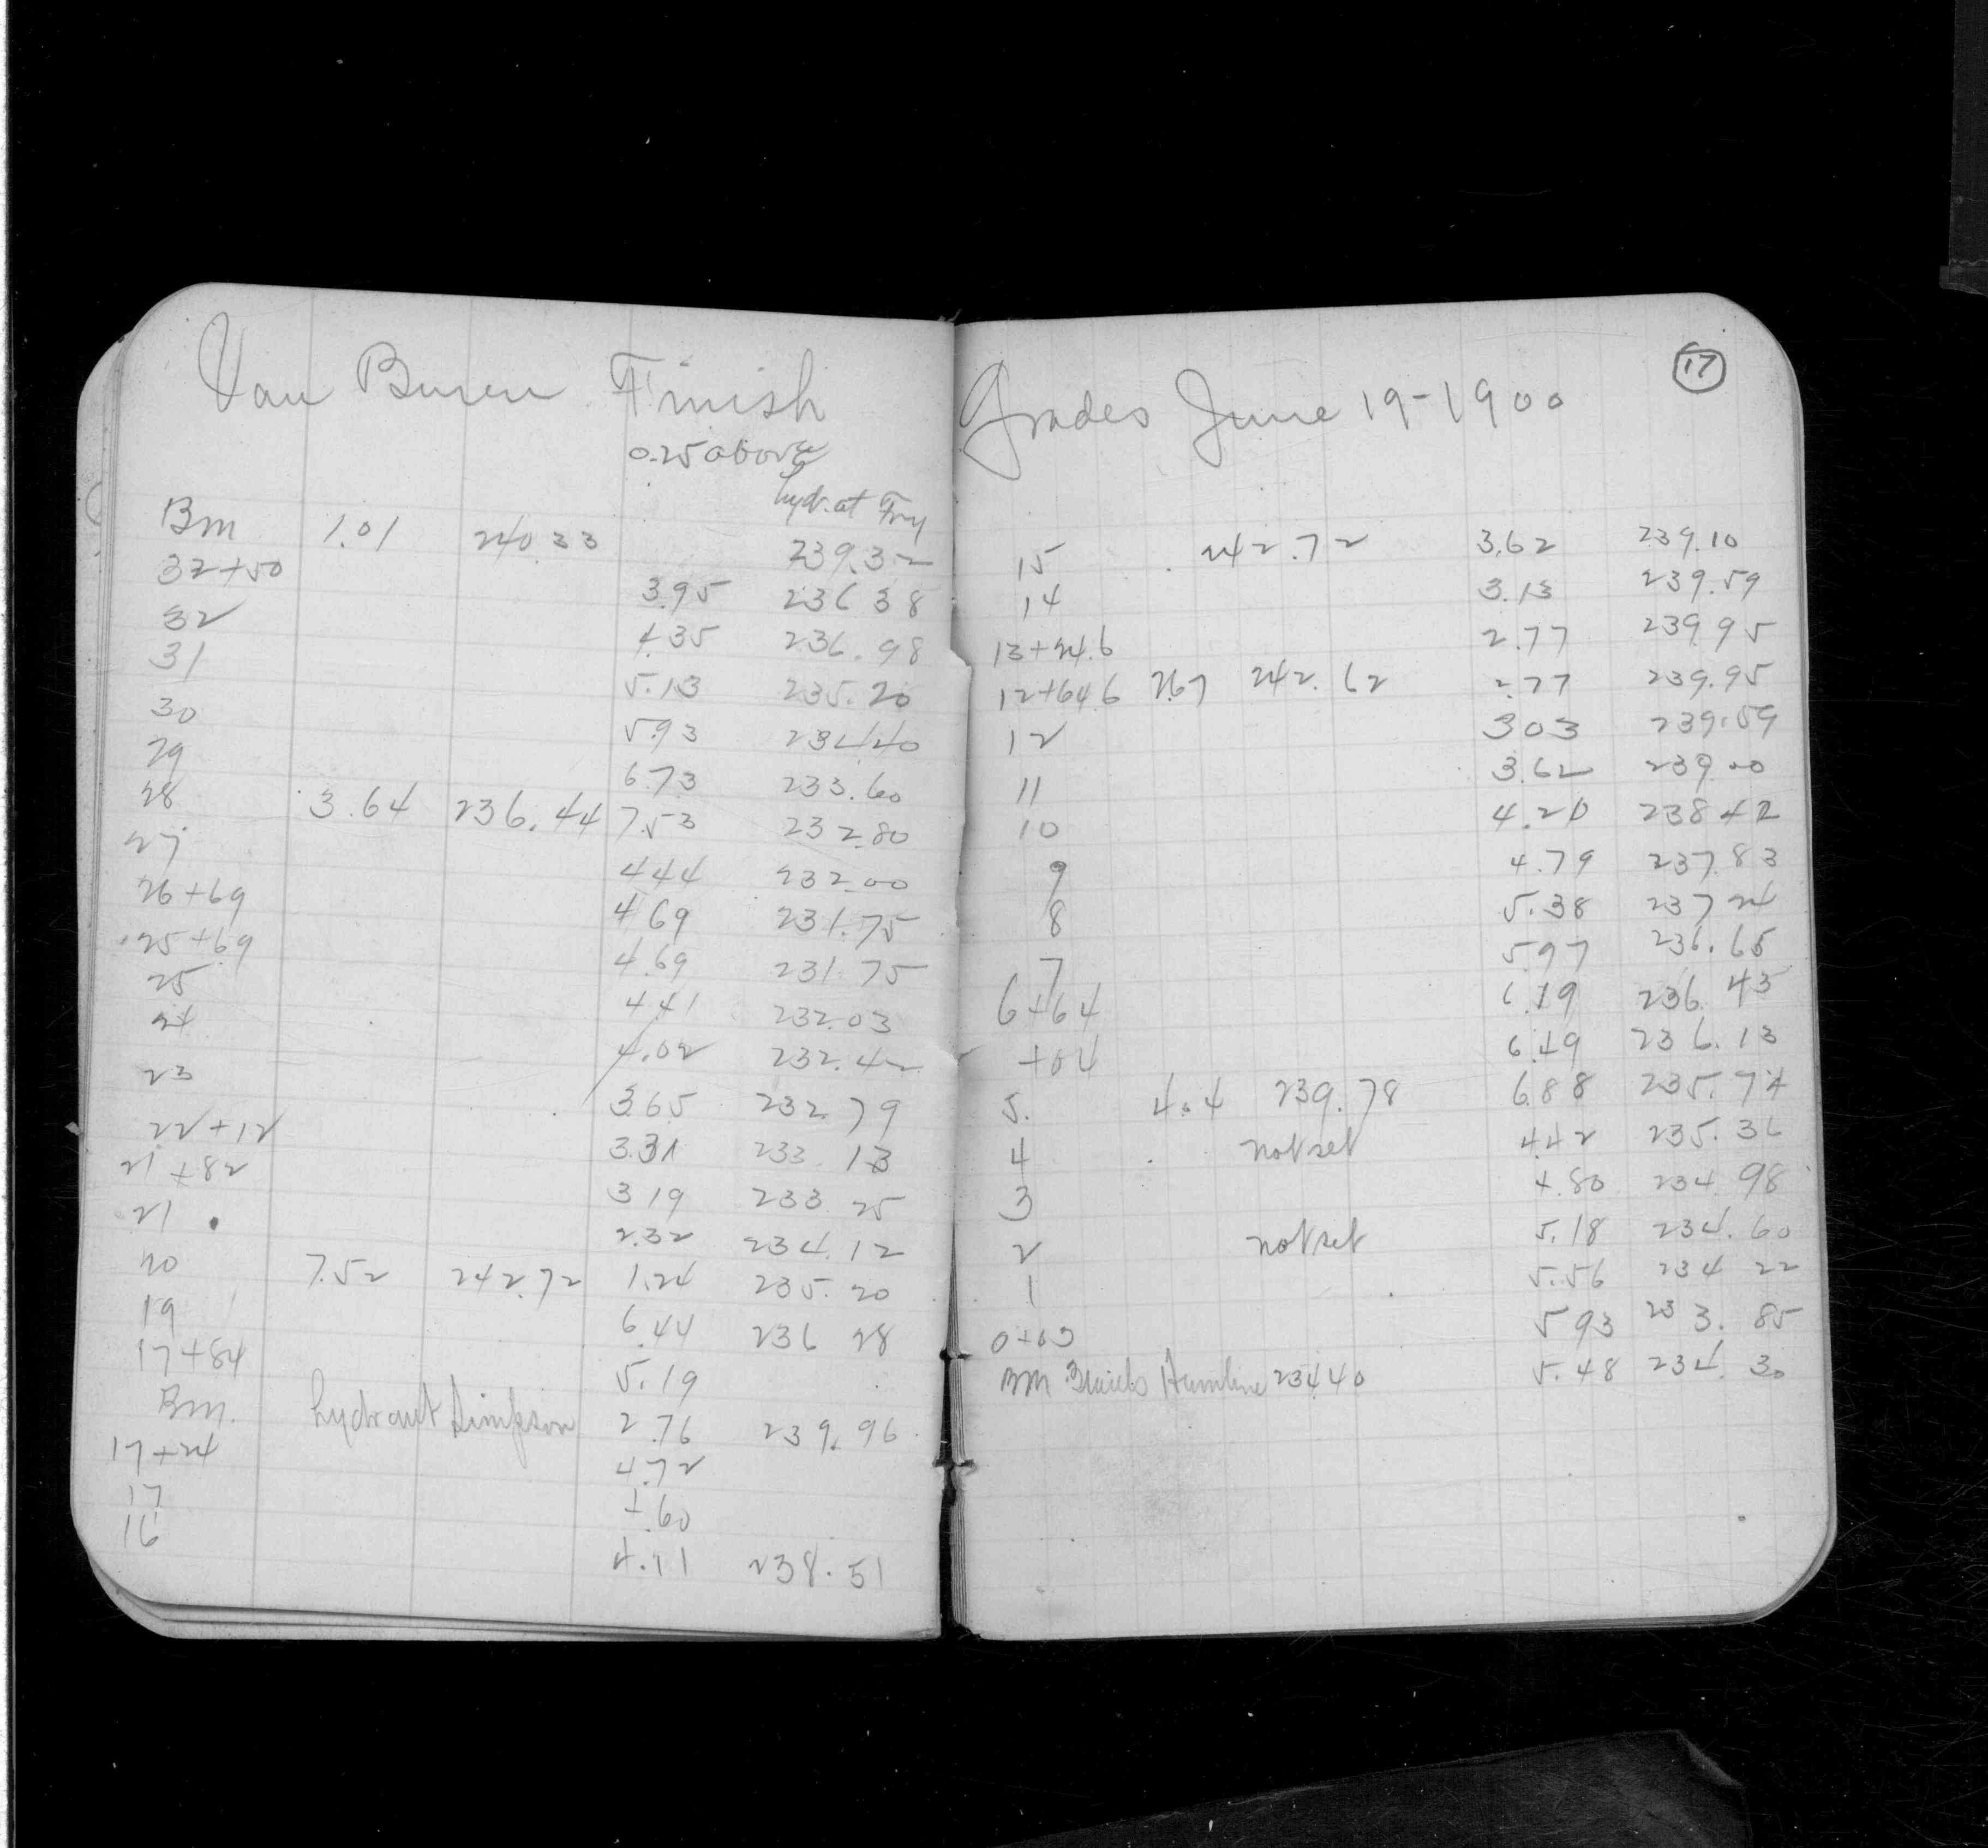 Van Buren Finish
0.25 above
hydr. at Fry
Bm 1.01 240.33 239.32
32+50 3.95 236 38
32 4.35 236.98
31 5.13 235.20
30 5.93 234.40
29 6.73 233.60
28 3.64 236.44 7.53 232.80
27 4.44 232.00
26+69 4.69 231.75
25+69 4.69 231.75
25 4.41 232.03
24 4.02 232.42
23 3.65 232.79
22+12 3.31 233.13
21+82 3 19 233.25
21 2.32 234.12
20 7.52 242.72 1.24 235.20
19 6.44 236 28
17+84 5.19
Bm. hydrant Simpson 2.76 239.96
17+24 4.72
17 4.60
16 4.11 238.51
Grades June 19-1900
17
15 242.72 3.62 239.10
14 3.13 239.59
13+24.6 2.77 239.95
12+64.6 2.67 242.62 2.77 239.95
12 3 03 239.59
11 3.62 239.00
10 4.20 238 42
9 4.79 237.83
8 5.38 237 24
7 5 97 236.65
6+64 6.19 236.43
+04 6.49 236.13
5. 4.04 239.78 6.88 235.74
4 not set 4.42 235.36
3 4.80 234 98
2 not set 5.18 234.60
1 5.56 234 22
0+03 5 93 233.85
BM Hamline 234.40 5.48 234.30